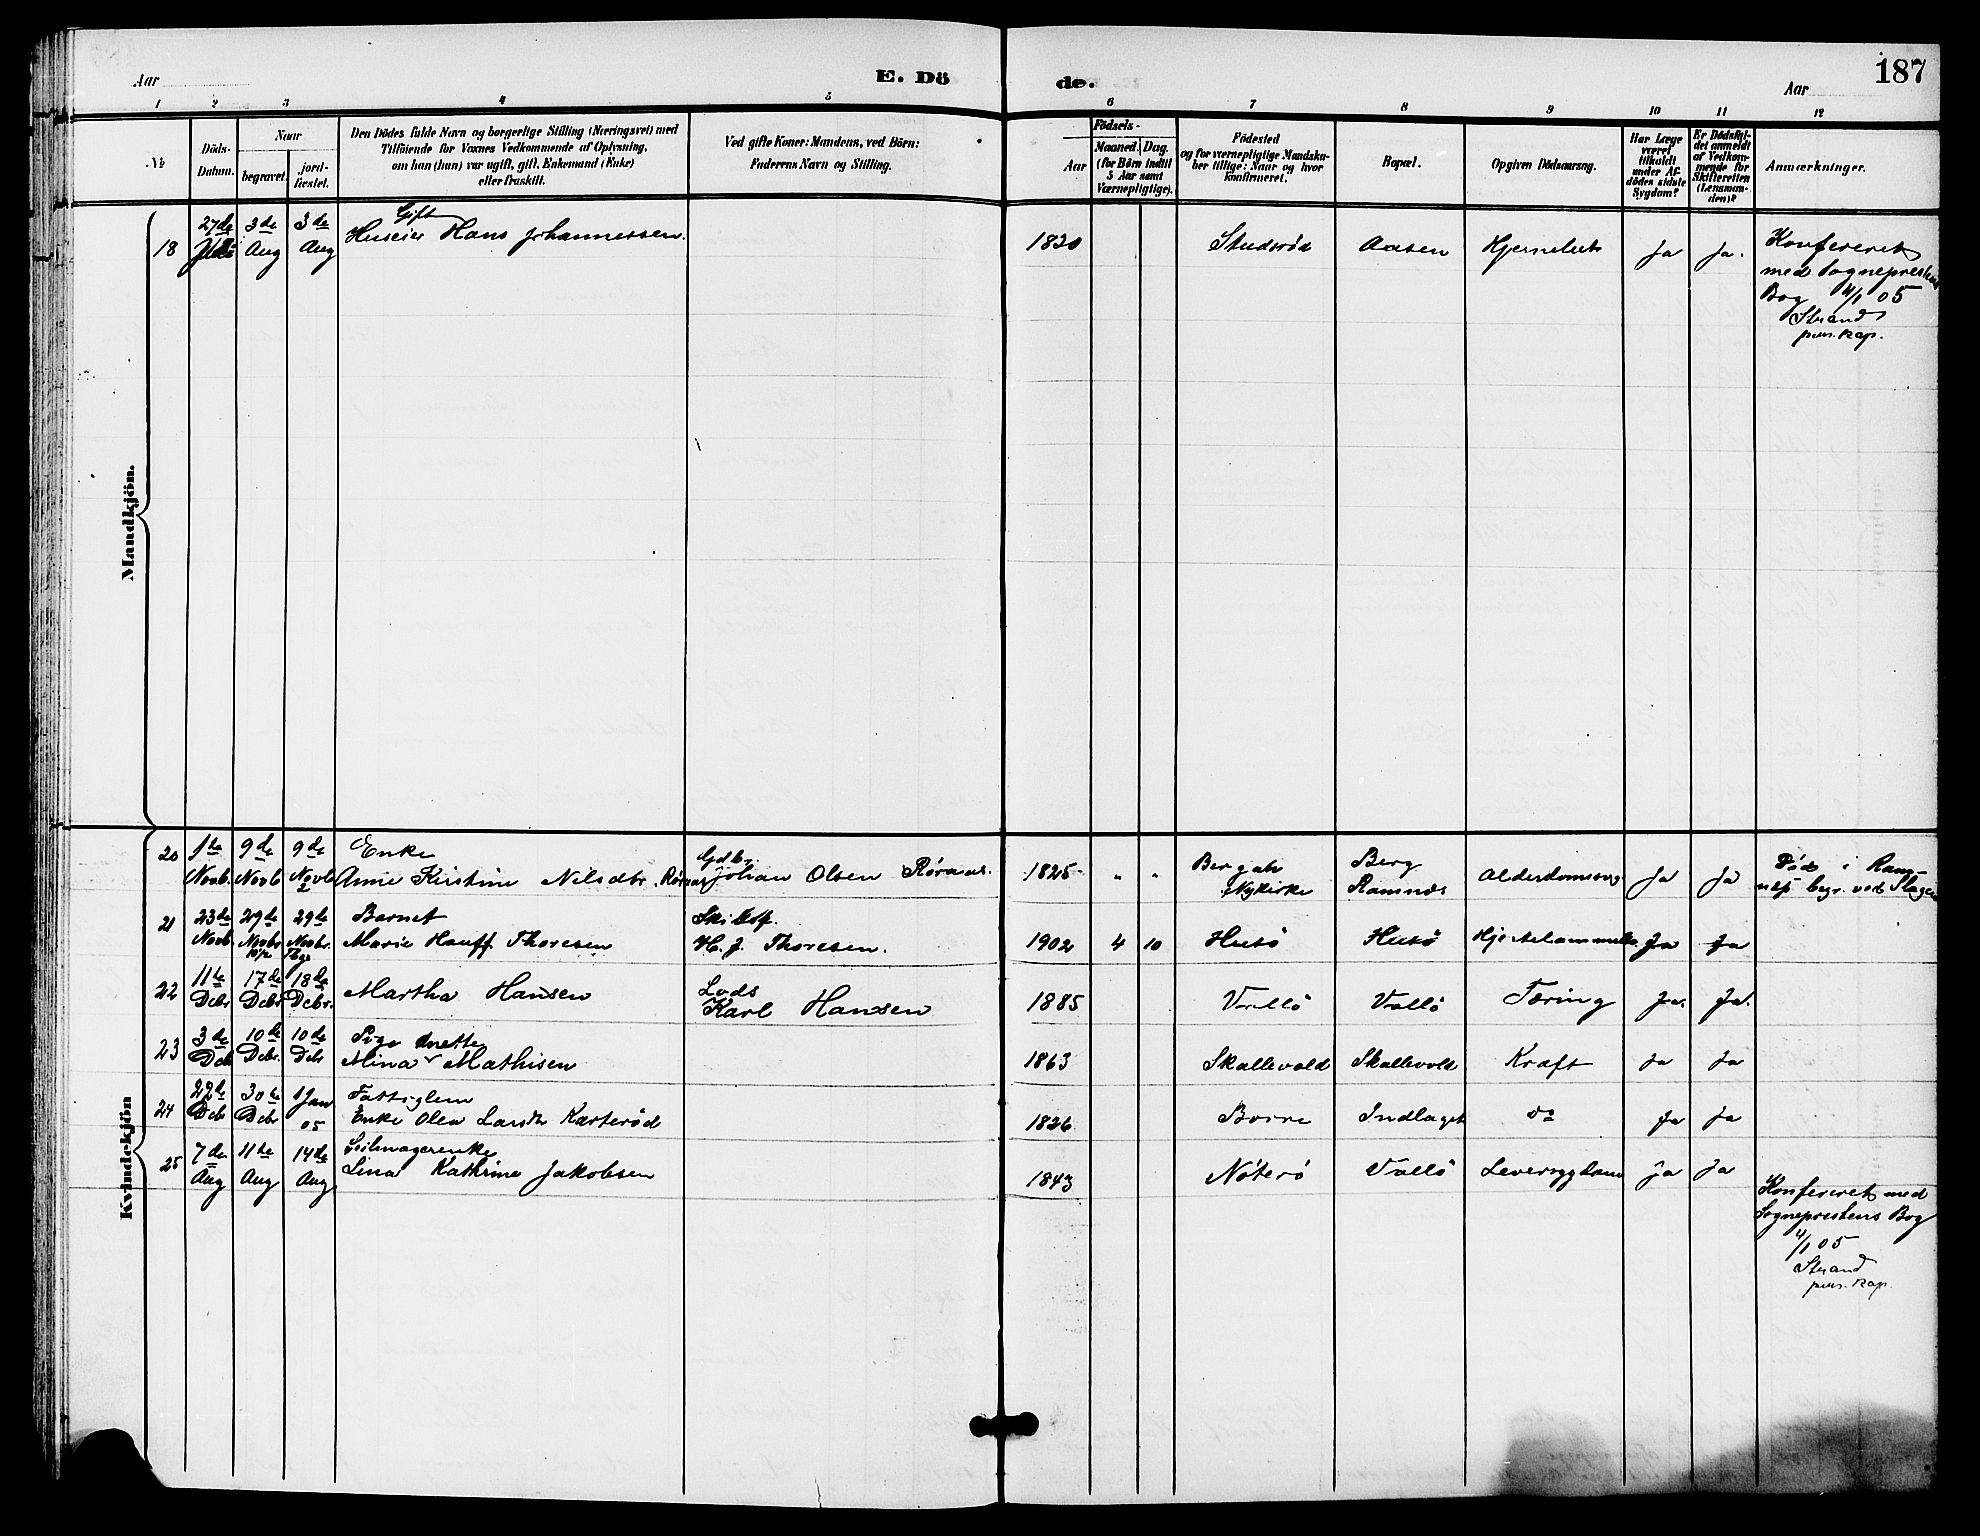 187
Aar
E. Dö
de.
Aar
1 2 3 4 5 6 7 8 9 10 11 12
No
Döds-
Datum.
Naar
begravet.
jord-
fæstet.
Den Dödes fulde Navn og borgerlige Stilling (Næringsvei) med
Tilföiende for Voxnes Vedkommende af Oplysning,
om han (hun) var ugift, gift, Enkemand (Enke)
eller fraskilt.
Ved gifte Koner: Mandens, ved Börn:
Faderens Navn og Stilling.
Födsels-
Aar
Maaned.
Dag.
(for Börn indtil
5 Aar samt
Værnepligtige).
Födested
og for værnepligtige Mandska-
ber tillige: Naar og hvor
konfirmeret.
Bopæl.
Opgiven Dödsaarsag.
Har Læge
været
tilkaldt
under Af-
dödes sidste
Sygdom?
Er Dödsfal-
det anmeldt
af Vedkom-
mende for
Skifteretten
(Lensman-
den)?
Anmærkninger.
Mandkjön.
18 27de Juli 3de Aug 3de Aug Gift
Huseier Hans Johannessen. 1820 Studsröd Aasen Hjerneslag Ja Ja.
Konfereret
med Sogneprestens
Bog 4/1 05
Strand
pers. kap.
Kvindekjön
20 1ste Novb. 9de Novb 9de Novb Enke
Anne Kirstine Nilsdtr. Røraas Gdbr.
Johan Olsen Røraas. 1825 " " Berg Nykirke Berg Ramnes Alderdomssvag Ja Ja Död i Ram-
nes begr. ved Slagen
21 23de Novb. 29de Novbr 29de Novbr. Barnet
Marie Hauff Thoresen
H. J. Thoresen. 1902 4 10 Husö Husö Ja Ja
22 11te Debr 17de Debr 18de Debr. Martha Hansen Lods
Karl Hansen 1885 Vallö Vallö Tæring Ja. Ja.
23 3de Deb 10de Debr. 10de Debr Pige
Mina Mathisen 1863 Skallevold Skallevold Kræft Ja Ja
24 22de Deb 30te Debr 1 Jan 05 Fattiglem
Enke Olea Larsdtr Karteröd 1826 Borre Indlaget do Ja Ja
25 7de Aug 11te Aug 14de Aug Seilmagerenke
Lina Kathrine Jakobsen 1843 Nöterö Vallö Leversygdom Ja Ja
Konfereret med
Sogneprestens Bog
4/1 05
Strand
pers. kap.